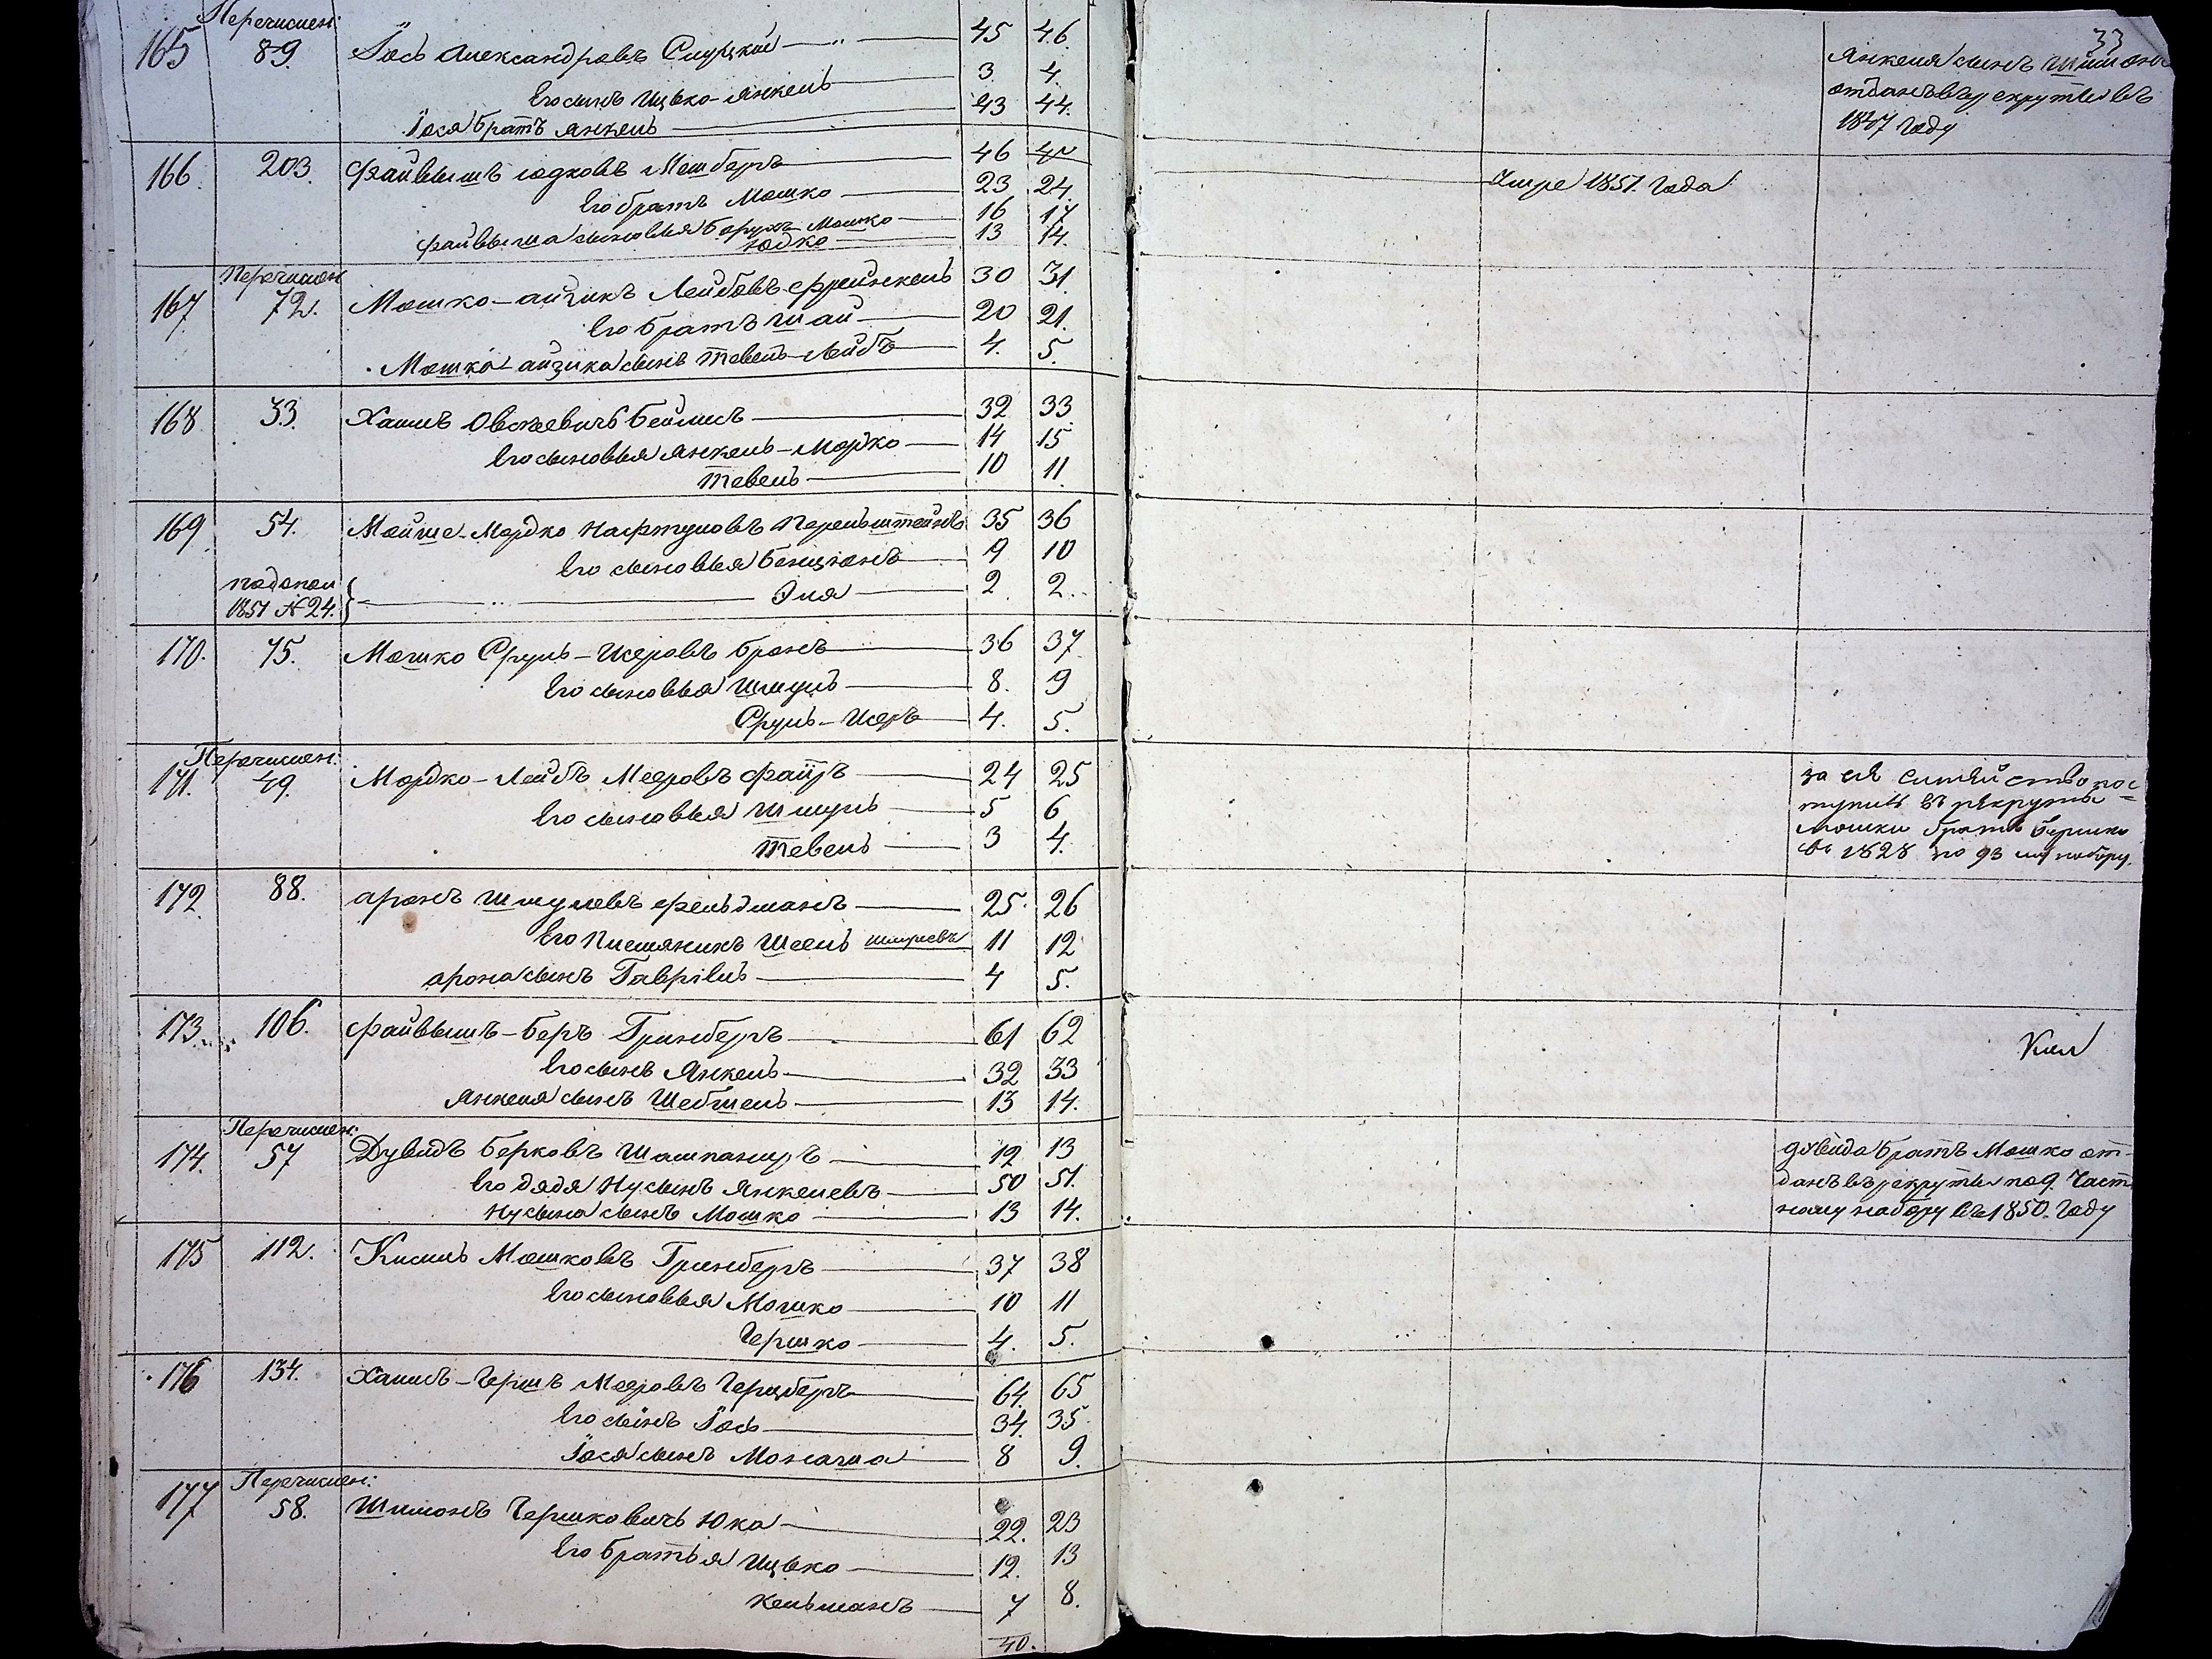 33
Перечислен:
165 89. Іось Александровъ Слуцкій 45 46.
Его сынъ Ицько-Янкель 3 4.
Іося братъ Янкель 43 44.
Янкеля сынъ Шимонъ
отданъ въ рекруты въ
1847 Году
166. 203. Файвышъ Юдковъ 46
Его братъ Мошко 23 24.
Файвыша сыновья Борухъ-Мошко 16 17
Юдко 13 14.
Умре 1851. Года
Перечислен
167 72. Мошко-Айзикъ Лейбовъ Френкель 30 31
Его братъ Шай 20 21.
Мошка-Айзика сынъ Тевель-Лейбъ 4. 5.
168 33. Хаимъ Овсѣевичъ Беймсъ 32 33
Его сыновья Янкель-Мордко 14 15
Тевель 10 11.
169 54. Мойше-Мордко Нафтуловъ Перельштейнъ 35 36
Его сыновья Бенціонъ 9 10
1851 № 24. Эля 2 2.
170. 75. Мошко Сруль-Исеровъ Бронъ 36 37
Его сыновья Шмуль 8. 9
Сруль-Исеръ 4. 5.
Перечислен:
171. 49. Мордко-Лейбъ Мееровъ Файръ 24 25
Его сыновья Шмуль 5 6
Тевель 3 4.
за сіе Семейство пос
тупилъ въ рекруты
Мошки братъ Бершко
въ 1828 по 93 му набору.
172 88. Аронъ Шмулевъ Фельдманъ 25 26
Его Племяникъ 11 12
Арона сынъ Гавріилъ 4 5.
173 106. Файвышъ-Беръ Гринбергъ 61 62
Его сынъ Янкель 32 33
Янкеля сынъ Шебшель 13 14.
Перечислен:
174. 57 Дувидъ Берковъ Шампаниръ 12 13
Его дядя Нусынъ Янкелевъ 50 51.
Нусына сынъ Мошко 13 14.
Дувида братъ Мошко от-
данъ въ рекруты по 9. Част
ному набору въ 1850. Году
175 112. Кисиль Мошковъ Гринбергъ 37 38
Его сыновья Мошко 10 11
Гершко 4. 5.
176 134. Хаимъ-Гершъ Мееровъ Герцбергъ 64. 65
Его сынъ Іось 34. 35.
Іося сынъ Монаша 8 9.
Перечислен:
177 58. Шимонъ Гершковичъ Юка 22. 23
Его братья Ицько 12. 13
Кельманъ 7 8.
40.